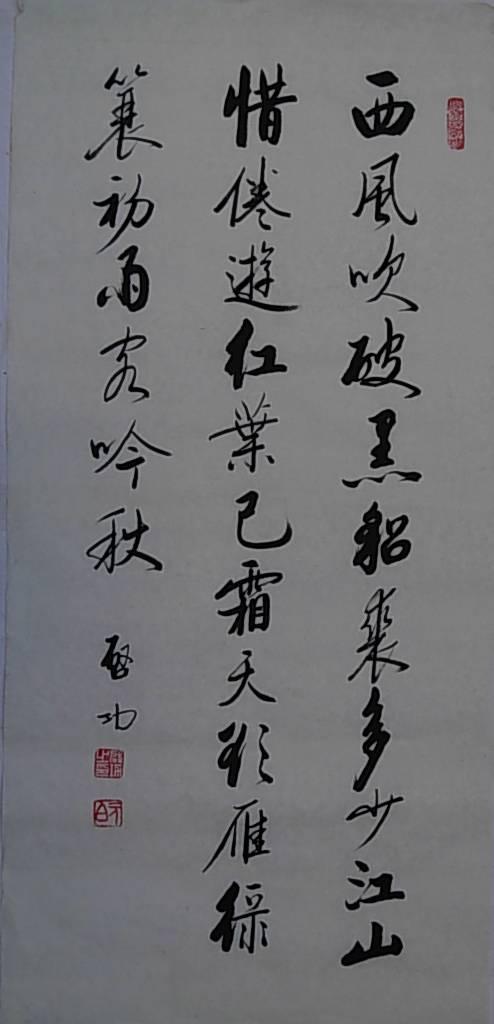 西風吹破黑貂裘多少江山
惜倦遊紅葉已霜天欲雁綠
簑初雨客吟秋
啓功